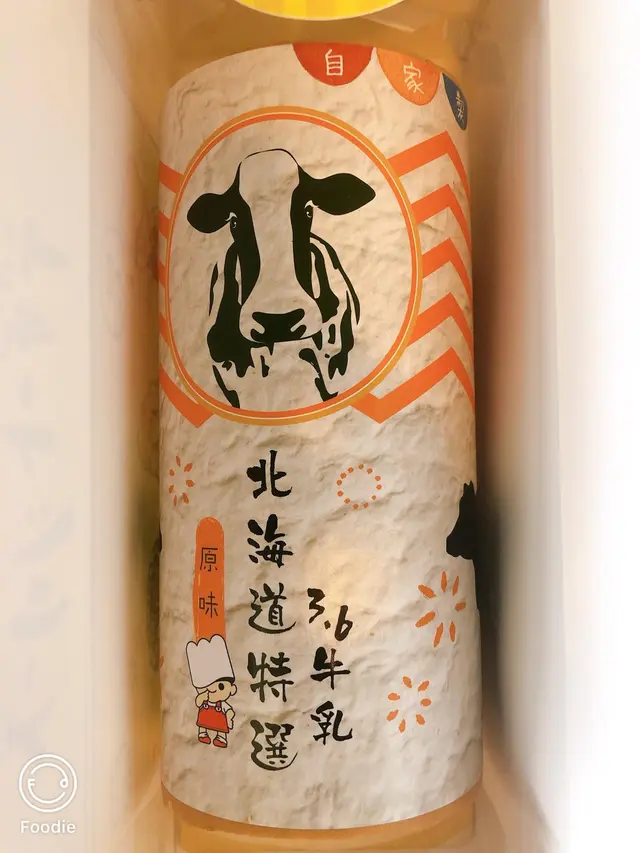 自家製
北海道特選
3.6牛乳
原味
Foodie